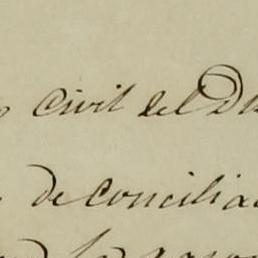 Civil del Du
de concilia